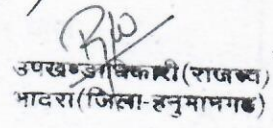 उपखण्ड अधिकारी (राजस्व)
भादरा (जिला-हनुमानगढ)